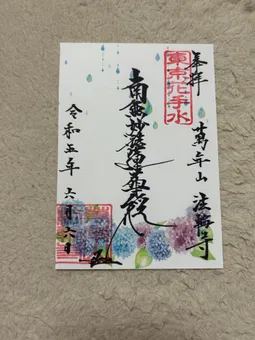 奉拝 萬年山 法輪寺
東京花手水
南無妙法蓮華経
令和五年 六月六日